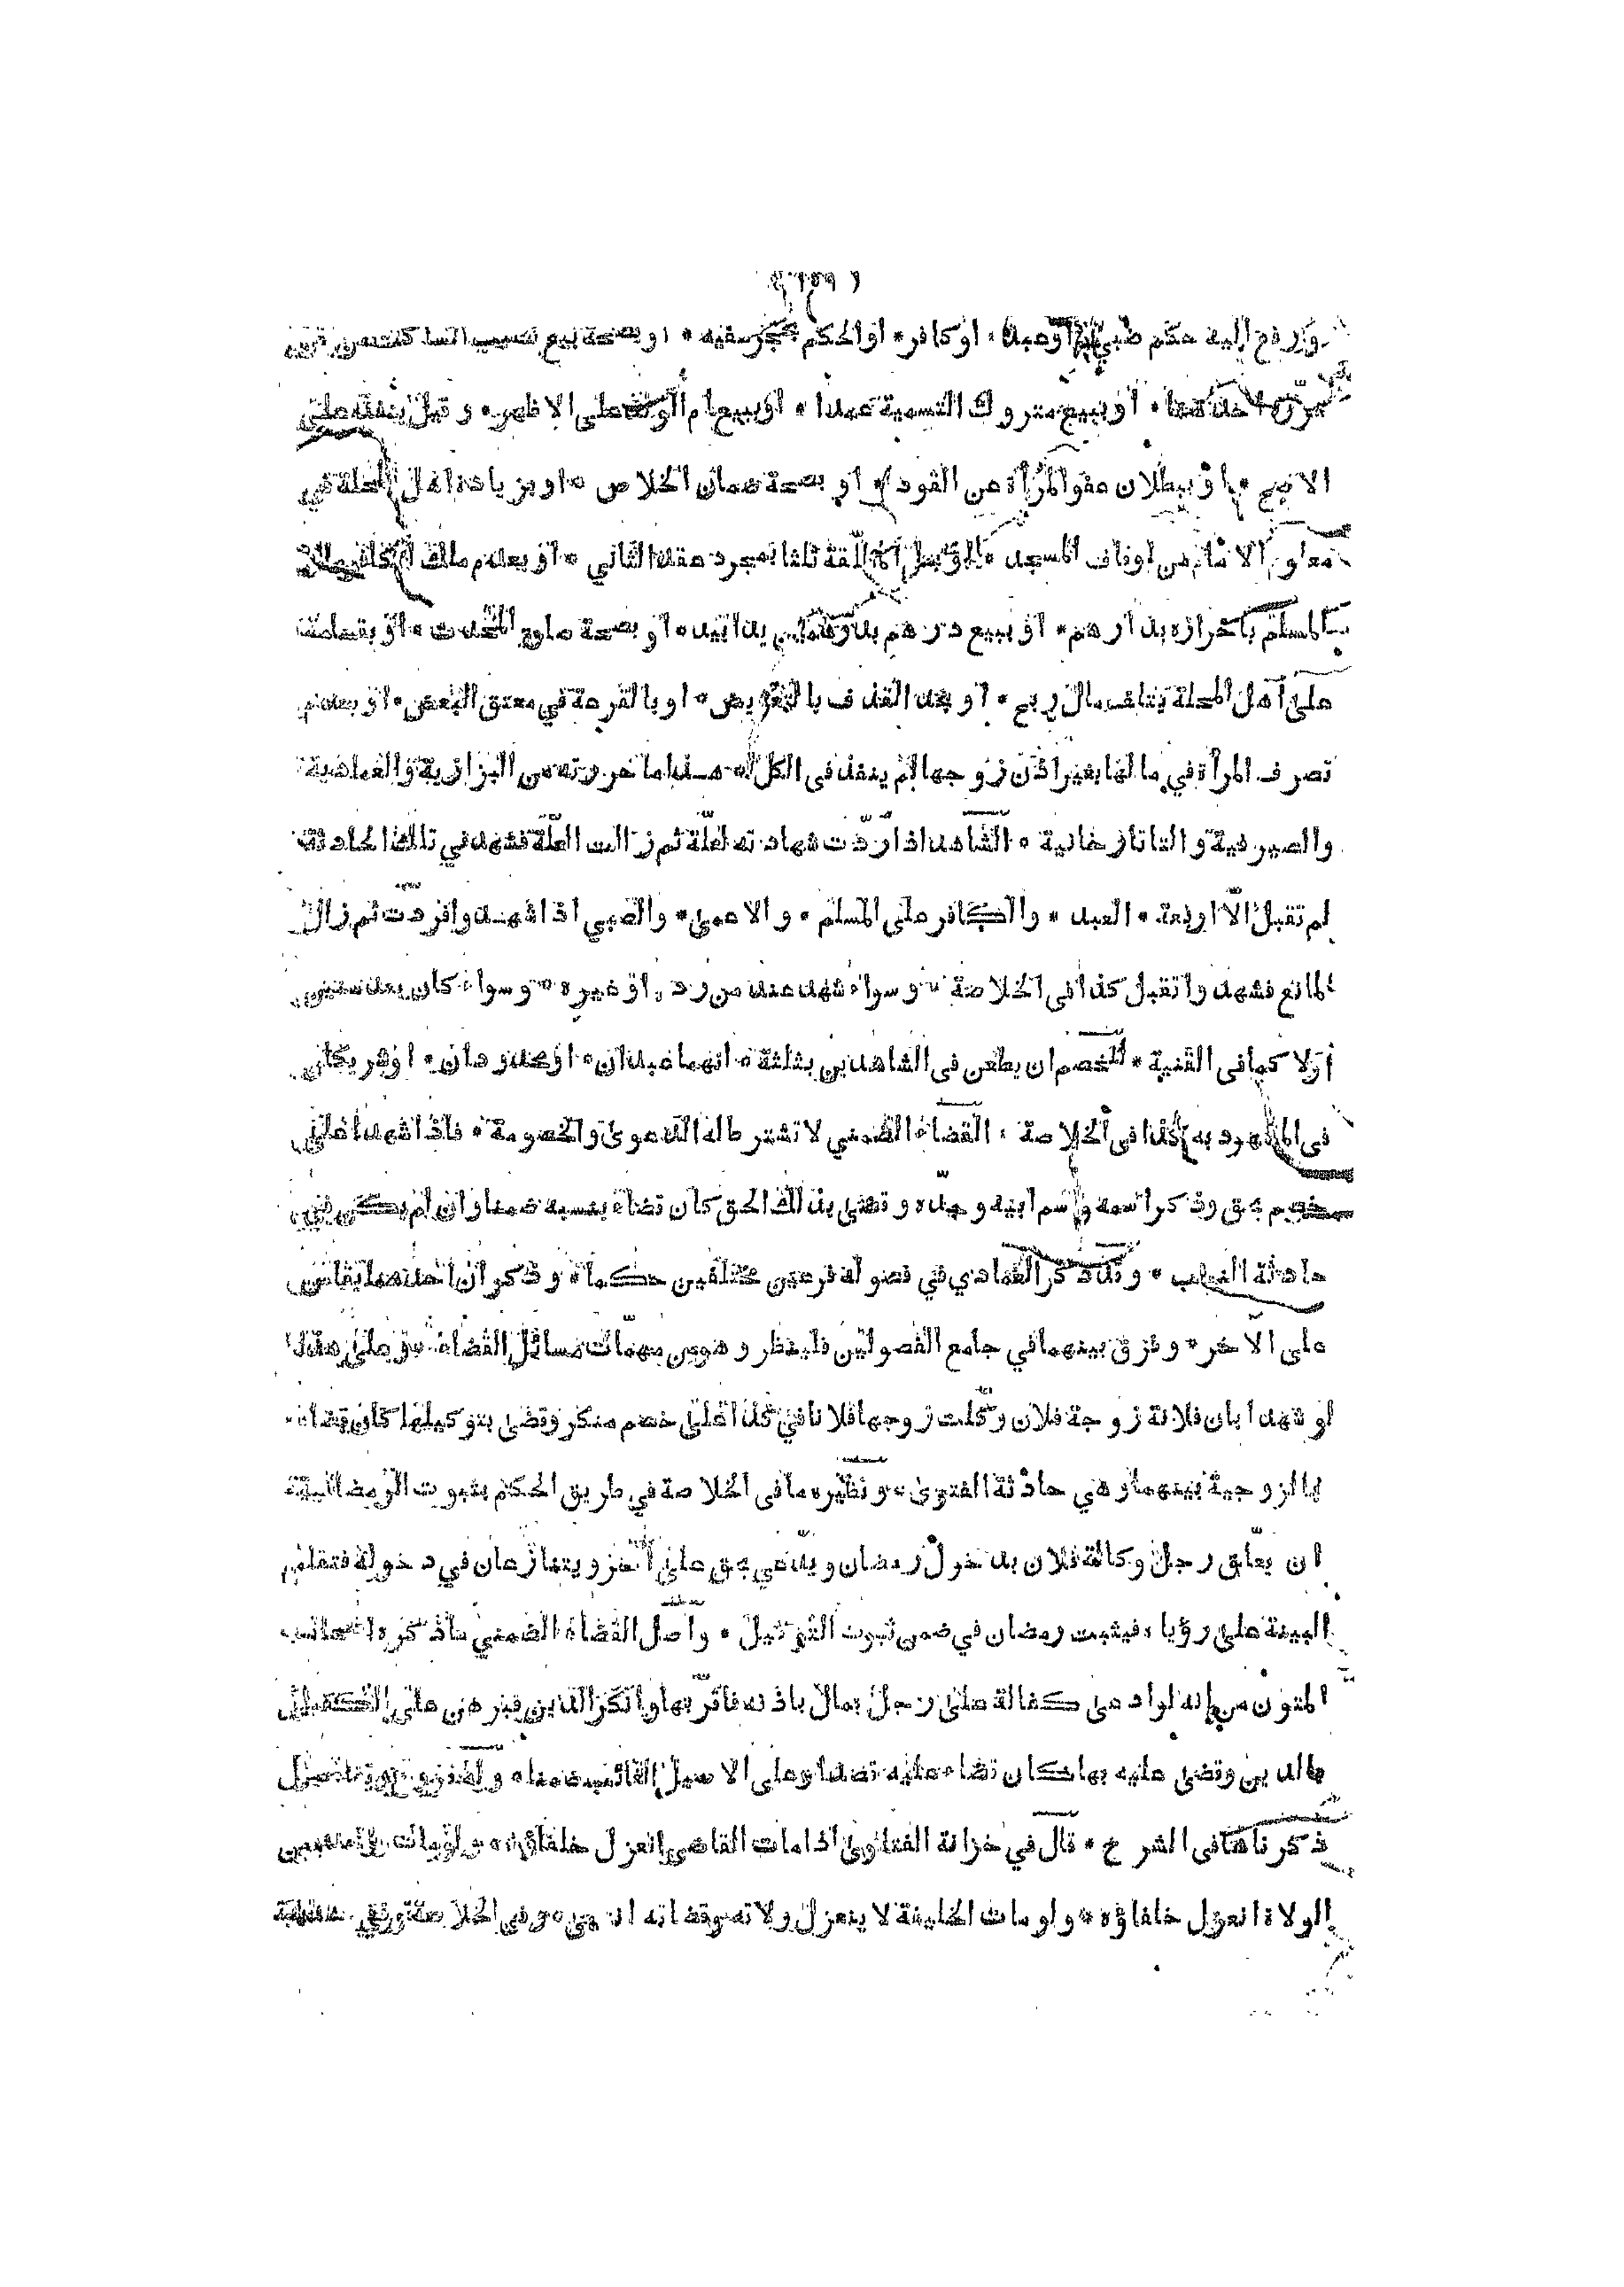 ( ٢٥٩ )
ورفع اليه حكم صبي او عبد * او كافر * او الحكم بحجر سفيه * او بصحة بيع نصيب الساكت من قن
حرره احدهما * او ببيع متروك التسمية عمدا * او ببيع ام الولد على الاظهر * وقيل ينفذ على
الاصح * او ببطلان عفو المرأة عن القود * او بصحة ضمان الخلاص * او بزيادة اهل المحلة في
معلوم الامام من اوقاف المسجد * او بحل المطلقة ثلثا بمجرد عقد الثاني * او بعدم ملك الكافر مال
المسلم باحرازه بدارهم * او ببيع درهم بدرهمين يدا بيد * او بصحة صلوة المحدث * او بقسامة
على اهل المحلة بتلف مال * او بحد القذف بالتعريض * او بالقرعة في معتق البعض * او بعدم
تصرف المرأة في مالها بغير اذن زوجها لم ينفذ فى الكل * هذا ما حررته من البزازية والعمادية
والصيرفية والتاتارخانية * الشاهد اذا ردت شهادته لعلة ثم زالت العلة فشهد في تلك الحادثة
لم تقبل الا اربعة * العبد * والكافر على المسلم * والاعمى * والصبي اذا شهدوا فردت ثم زال
المانع فشهدوا تقبل كذا فى الخلاصة * وسواء شهد عند من رده او غيره * وسواء كان بعد سنين
اولا كما فى القنية * للخصم ان يطعن فى الشاهدين بثلثة * انهما عبدان * او محدودان * او شريكان
فى المشهود به كذا فى الخلاصة * القضاء الضمني لا تشترط له الدعوى والخصومة * فاذا شهدا على
خصم بحق وذكرا اسمه واسم ابيه وجده وقضى بذلك الحق كان قضاء بنسبه ضمنا وان لم يكن في
حادثة النسب * وقد ذكر العمادي في فصوله فرعين مختلفين حكما * وذكر ان احدهما يقاس
على الآخر * وفرق بينهما في جامع الفصولين فلينظر وهو من مهمات مسائل القضاء * وعلى هذا
لو شهدا بان فلانة زوجة فلان وكلت زوجها فلانا في كذا على خصم منكر وقضى بتوكيلها كان قضاء
بالزوجية بينهما وهي حادثة الفتوى * ونظيره ما فى الخلاصة في طريق الحكم بثبوت الرمضانية
ان يعلق رجل وكالة فلان بدخول رمضان ويدعي بحق على آخر ويتنازعان في دخوله فتقام
البينة على رؤياه فيثبت رمضان في ضمن ثبوت التوكيل * واصل القضاء الضمني ما ذكره اصحاب
المتون من انه لو ادعى كفالة على رجل بمال باذنه فاقر بها وانكر الدين فبرهن على الكفيل
بالدين وقضى عليه بها كان قضاء عليه قصدا وعلى الاصيل الغائب ضمنا * وله فروع وتفاصيل
ذكرناها فى الشرح * قال في خزانة الفتاوى اذا مات القاضي انعزل خلفاؤه * ولو مات واحد من
الولاة انعزل خلفاؤه * ولو مات الخليفة لا ينعزل ولاته وقضاته انتهى * وفى الخلاصة وفي